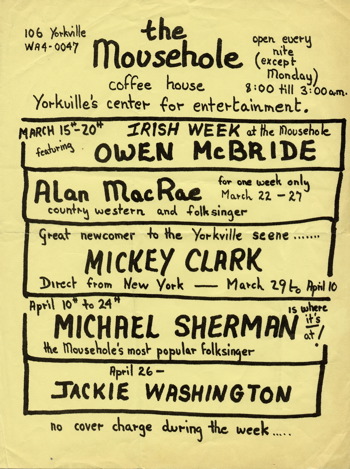 106 Yorkville
WA4-0047
the
Mousehole
coffee house
open every
nite
(except
Monday)
8:00 till 3:00am.
Yorkville's center for entertainment.
MARCH 15th-20th IRISH WEEK at the Mousehole
featuring OWEN McBRIDE
Alan MacRae for one week only
March 22-27
country western and folksinger
Great newcomer to the Yorkville scene.......
MICKEY CLARK
Direct from New York — March 29 to April 10
April 10th to 24th
MICHAEL SHERMAN is where
it's
at!
the Mousehole's most popular folksinger
April 26-
JACKIE WASHINGTON
no cover charge during the week.....